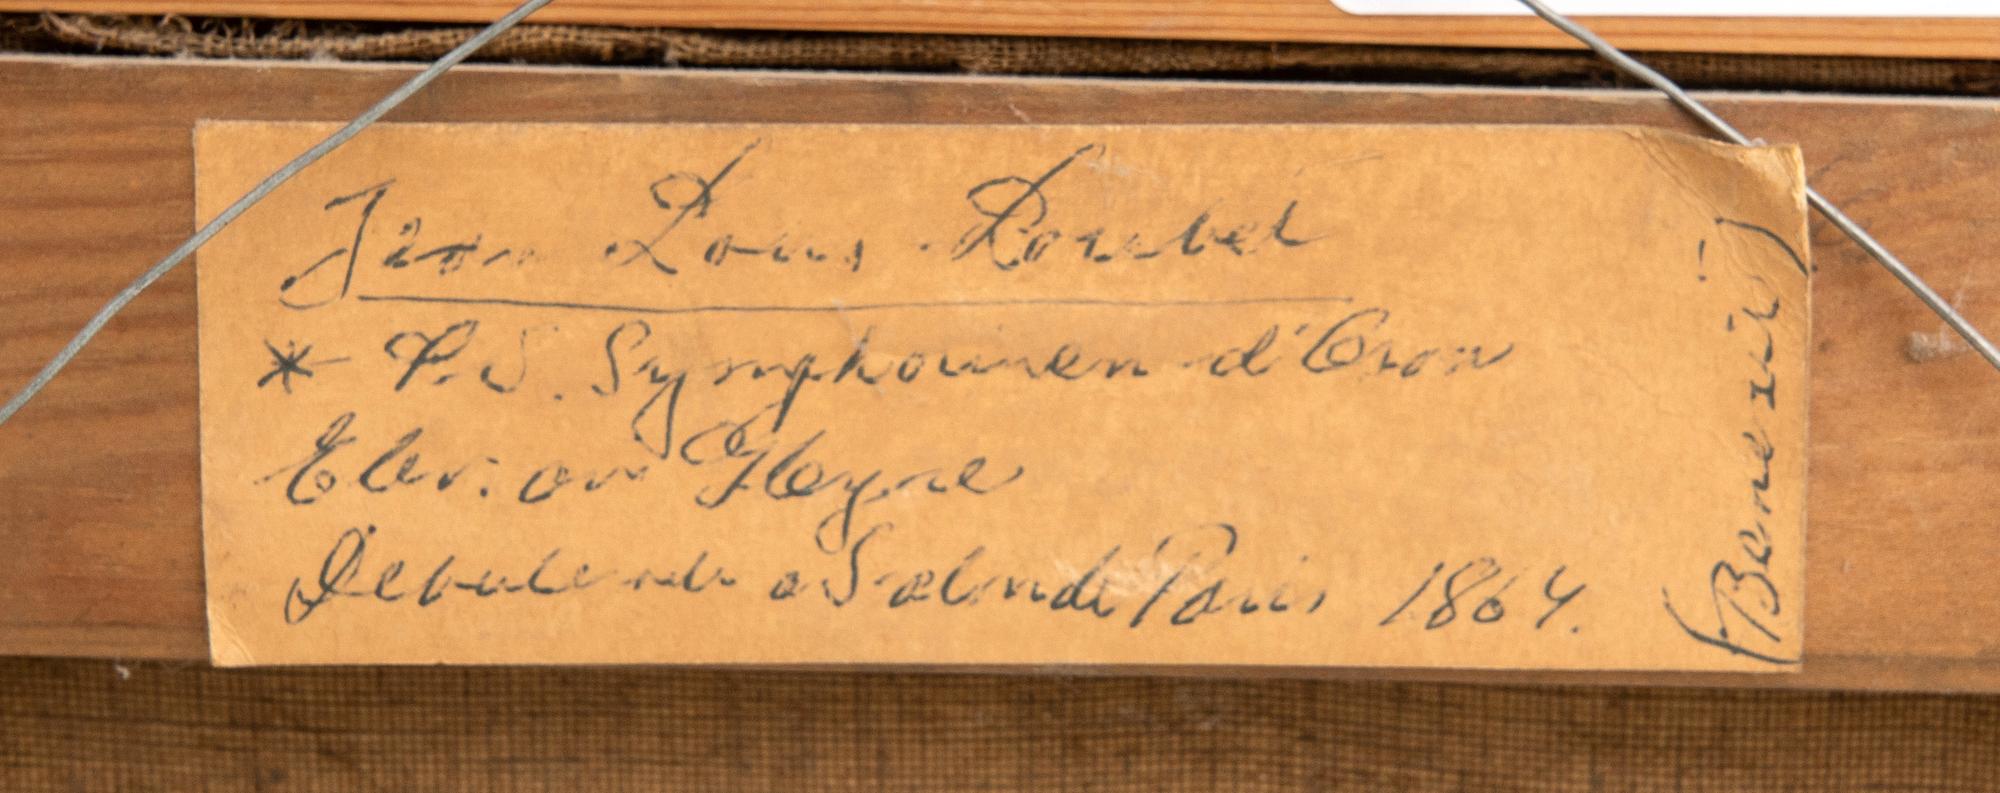 Jean Louis Loubet
* P.S. Symphorinen d'Oron
Elev. av Gleyre
Debuterade a Salon de Paris 1864.
(Benezit)